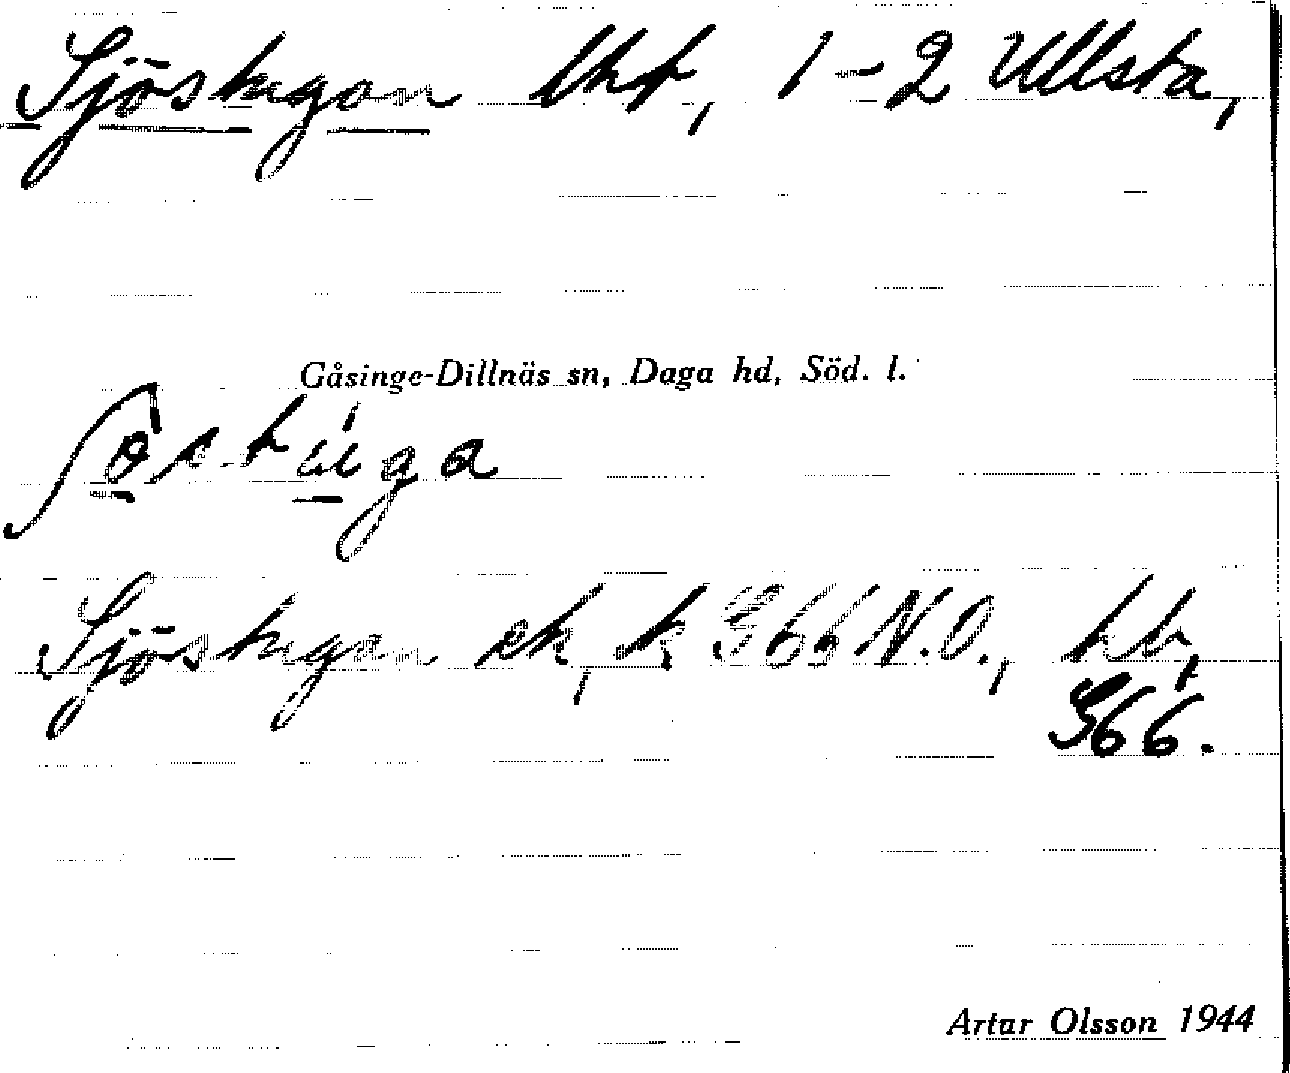 Sjöstugan lht, 1-2 Ullsta,
Gåsinge-Dillnäs sn, Daga hd, Söd. l.
Sjöstugan ek, k 366 N.O., hb,
366.
Artar Olsson 1944